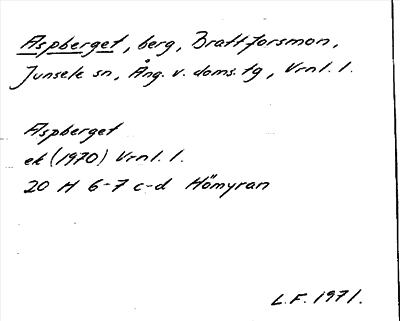 Aspberget, berg, Brattforsmon,
Junsele sn, Ång. v. doms. tg, Vrnl. l.
Aspberget
ek (1970) Vrnl. l.
20 H 6-7 c-d Hömyran
L.F. 1971.